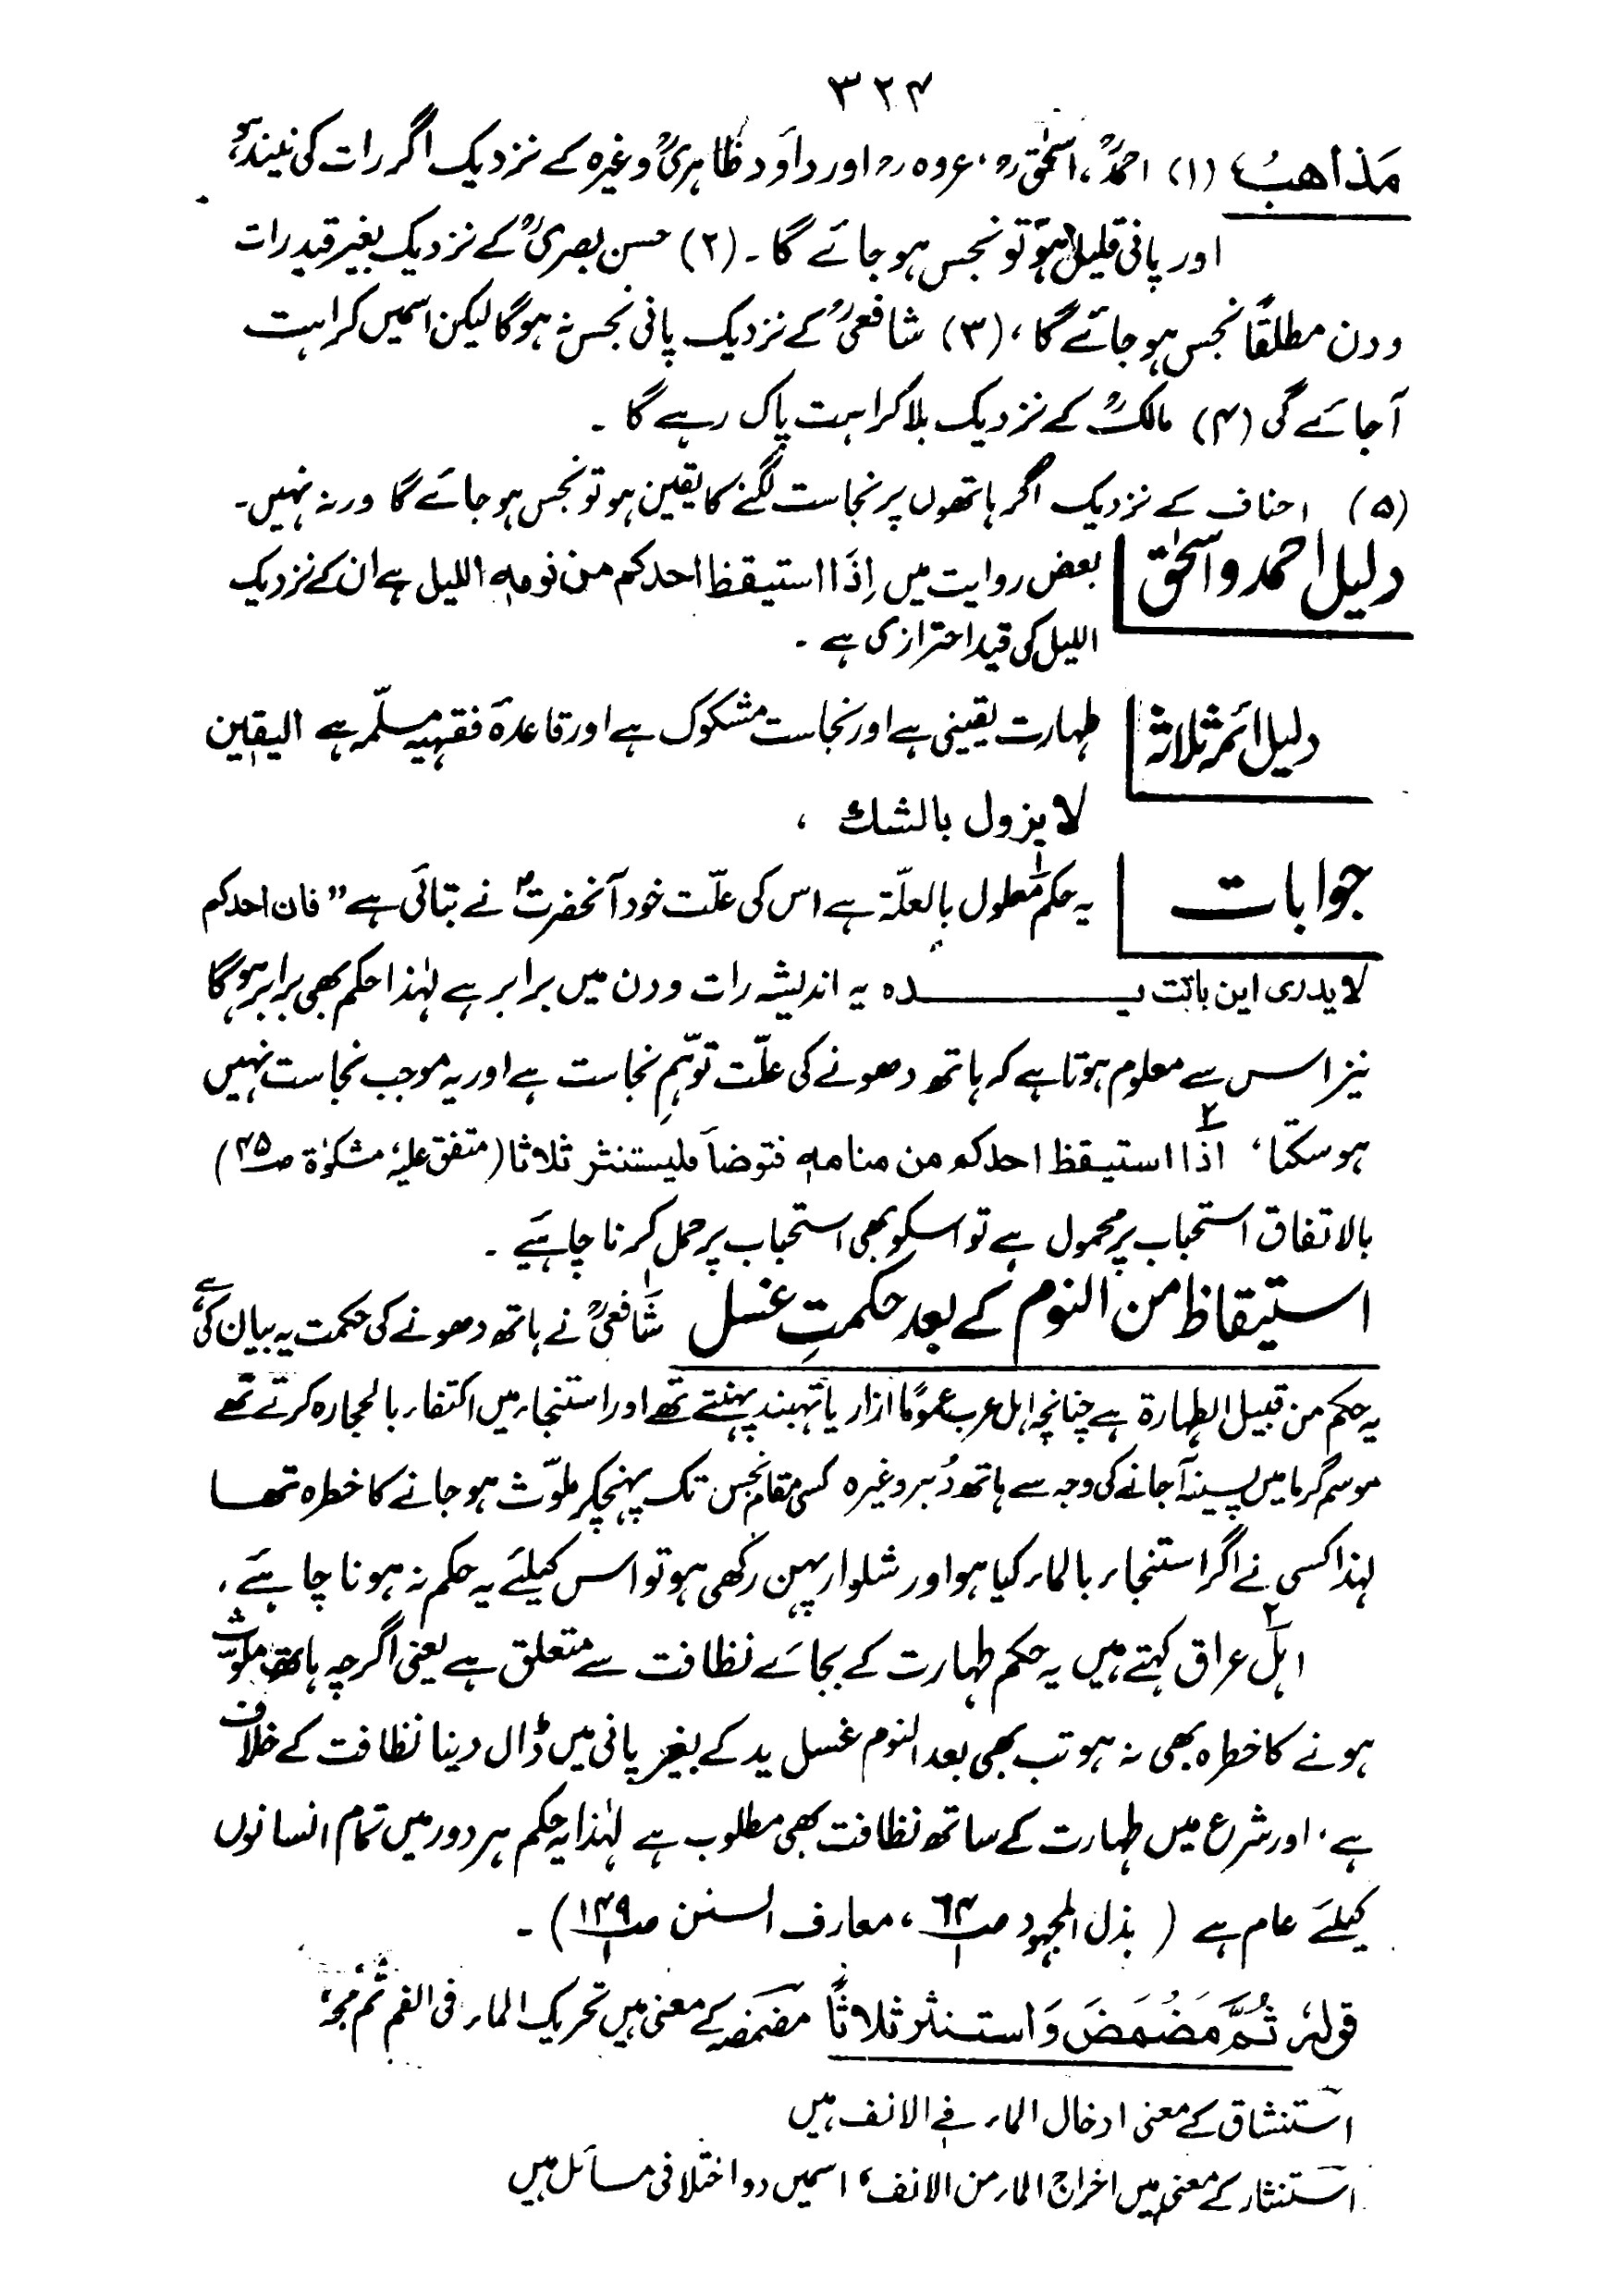 ۳۲۴
مَذاهبُ (۱) احمدؒ، اسحٰقؒ، عروہؒ اور داود ظاہریؒ وغیرہ کے نزدیک اگر رات کی نیند ہو
اور پانی قلیل ہو تو نجس ہو جائے گا۔ (۲) حسن بصریؒ کے نزدیک بغیر قید رات
و دن مطلقاً نجس ہو جائے گا، (۳) شافعیؒ کے نزدیک پانی نجس نہ ہوگا لیکن اسمیں کراہت
آجائے گی (۴) مالکؒ کے نزدیک بلا کراہت پاک رہے گا ۔
(۵) احناف کے نزدیک اگر ہاتھوں پر نجاست لگنے کا یقین ہو تو نجس ہو جائے گا ورنہ نہیں۔
دلیل احمد و اسحٰق بعض روایت میں اِذَا استیقظ احدکم من نومہ اللیل ہے ان کے نزدیک
اللیل کی قید احترازی ہے ۔
دلیل ائمہ ثلاثہ طہارت یقینی ہے اور نجاست مشکوک ہے اور قاعدہ فقہیہ مسلّمہ ہے الیقین
لا یزول بالشك ،
جوابات یہ حکم ۱ معلول بالعلّۃ ہے اس کی علّت خود آنحضرتؐ نے بتائی ہے ” فان احدکم
لا یدری این باتت یــــــدہ یہ اندیشہ رات و دن میں برابر ہے لہٰذا حکم بھی برابر ہوگا
نیز اس سے معلوم ہوتا ہے کہ ہاتھ دھونے کی علّت توہّمِ نجاست ہے اور یہ موجب نجاست نہیں
ہو سکتا، ۲ اذا استیقظ احدکم من منامہ فتوضأ فلیستنثر ثلاثا (متفق علیہ، مشکوٰۃ صـ۴۵)
بالاتفاق استحباب پر محمول ہے تو اسکو بھی استحباب پر حمل کرنا چاہیے ۔
استیقاظ من النوم کے بعد حکمتِ غسل ۱ شافعیؒ نے ہاتھ دھونے کی حکمت یہ بیان کی ہے،
یہ حکم من قبیل الطہارۃ ہے چنانچہ اہل عرب عمومًا ازار یا تہبند پہنتے تھے اور استنجاء میں اکتفاء بالحجارہ کرتے تھے
موسم گرما میں پسینہ آجانے کی وجہ سے ہاتھ دُبر وغیرہ کسی مقام نجس تک پہنچکر ملوّث ہو جانے کا خطرہ تھا
لہذا کسی نے اگر استنجاء بالماء کیا ہو اور شلوار پہن رکھی ہو تو اس کیلئے یہ حکم نہ ہونا چاہیے،
۲ اہل عراق کہتے ہیں یہ حکم طہارت کے بجائے نظافت سے متعلق ہے یعنی اگرچہ ہاتھ ملوّث
ہونے کا خطرہ بھی نہ ہو تب بھی بعد النوم غسل ید کے بغیر پانی میں ڈال دینا نظافت کے خلاف
ہے، اور شرع میں طہارت کے ساتھ نظافت بھی مطلوب ہے لہٰذا یہ حکم ہر دور میں تمام انسانوں
کیلئے عام ہے ( بذل المجہود صـ۶۴/۱، معارف السنن صـ۱۴۹/۱) ۔
قولہٗ ثُمَّ مَضْمَضَ وَاستنثر ثلاثًا مضمضہ کے معنی ہیں تحریک الماء فی الفم ثم مجہ،
استنشاق کے معنی ادخال الماء فی الانف ہیں
استنثار کے معنی ہیں اخراج الماء من الانف، اسمیں دو اختلافی مسائل ہیں